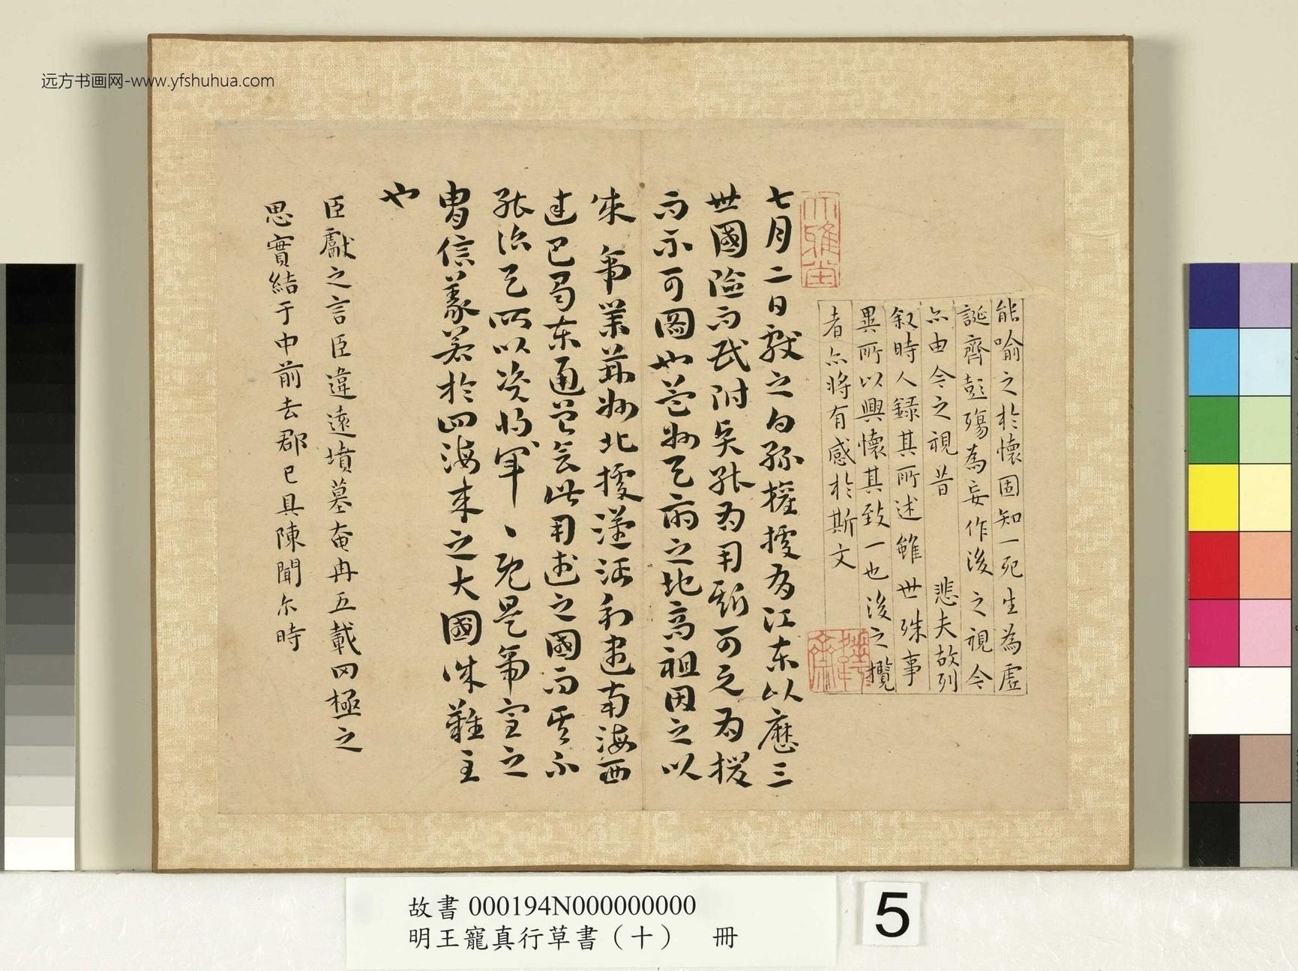 远方书画网-www.yfshuhua.com
能喻之於懷固知一死生為虛
誕齊彭殤為妄作後之視今
亦由今之視昔 悲夫故列
叙時人録其所述雖世殊事
異所以興懷其致一也後之攬
者亦將有感於斯文
大雅堂
七月二日獻之白孫權據有江東以歷三
世國險而民附矣能為用 可 為援
而不可圖也益州天府之地高祖因之以
成帝業荊州北據漢沔利盡南海西
連巴蜀東通吳會此用武之國而其不
能治天所以資將軍〻既是帝室之
胄信義著於四海來之大國誅難主
也
臣獻之言臣違遠墳墓奄冉五載罔極之
思實結于中前去郡已具陳聞尔時
故書 000194N000000000
明王寵真行草書（十） 冊
5